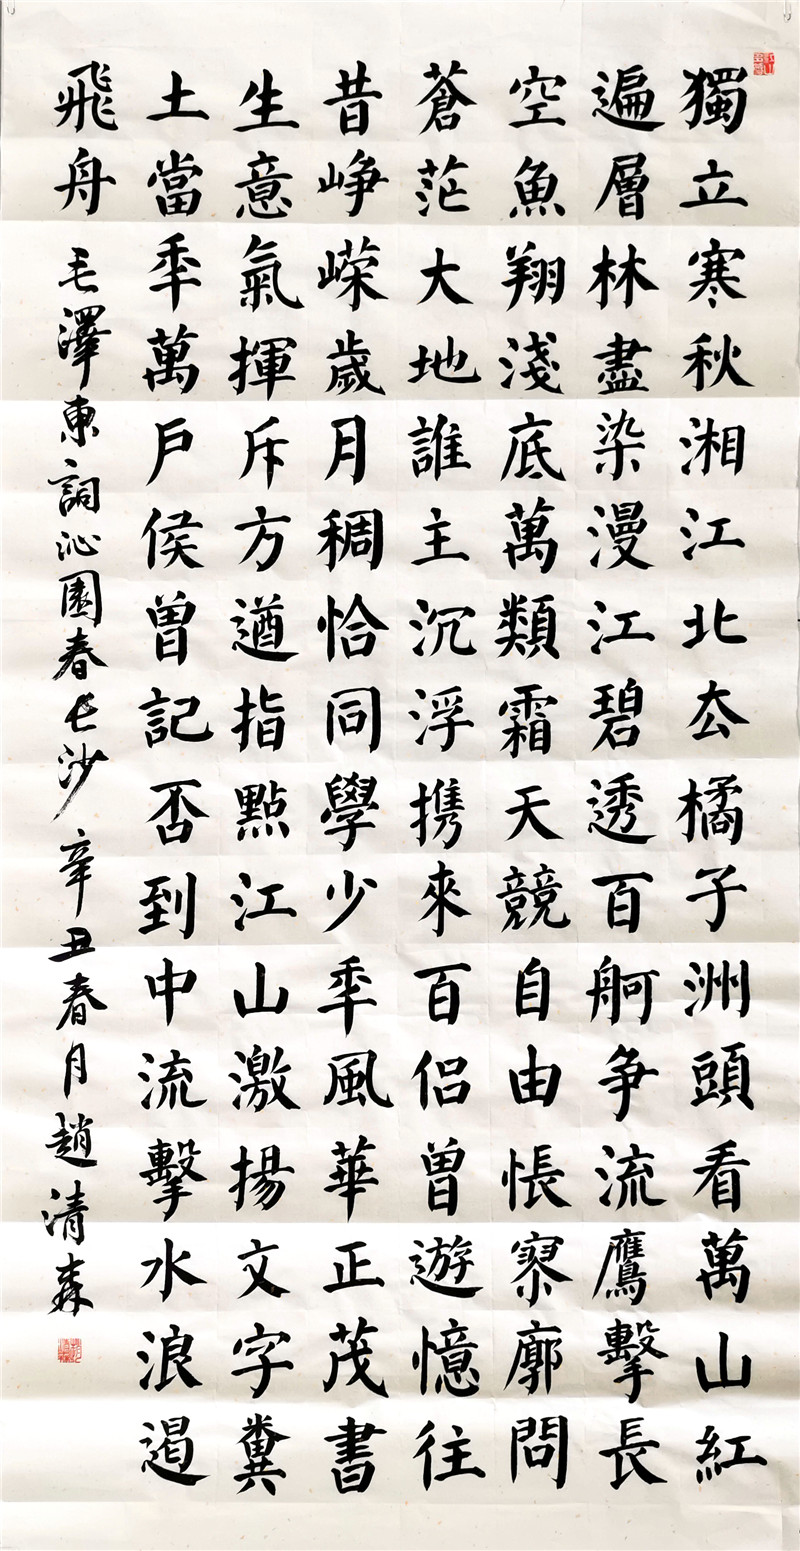 獨立寒秋湘江北去橘子洲頭看萬山紅
遍層林盡染漫江碧透百舸争流鷹擊長
空魚翔淺底萬類霜天競自由悵寥廓問
蒼茫大地誰主沉浮携來百侣曾遊憶往
昔峥嵘歲月稠恰同學少年風華正茂書
生意氣揮斥方遒指點江山激揚文字糞
土當年萬户侯曾記否到中流擊水浪遏
飛舟 毛澤東詞沁園春長沙 辛丑春月趙清森